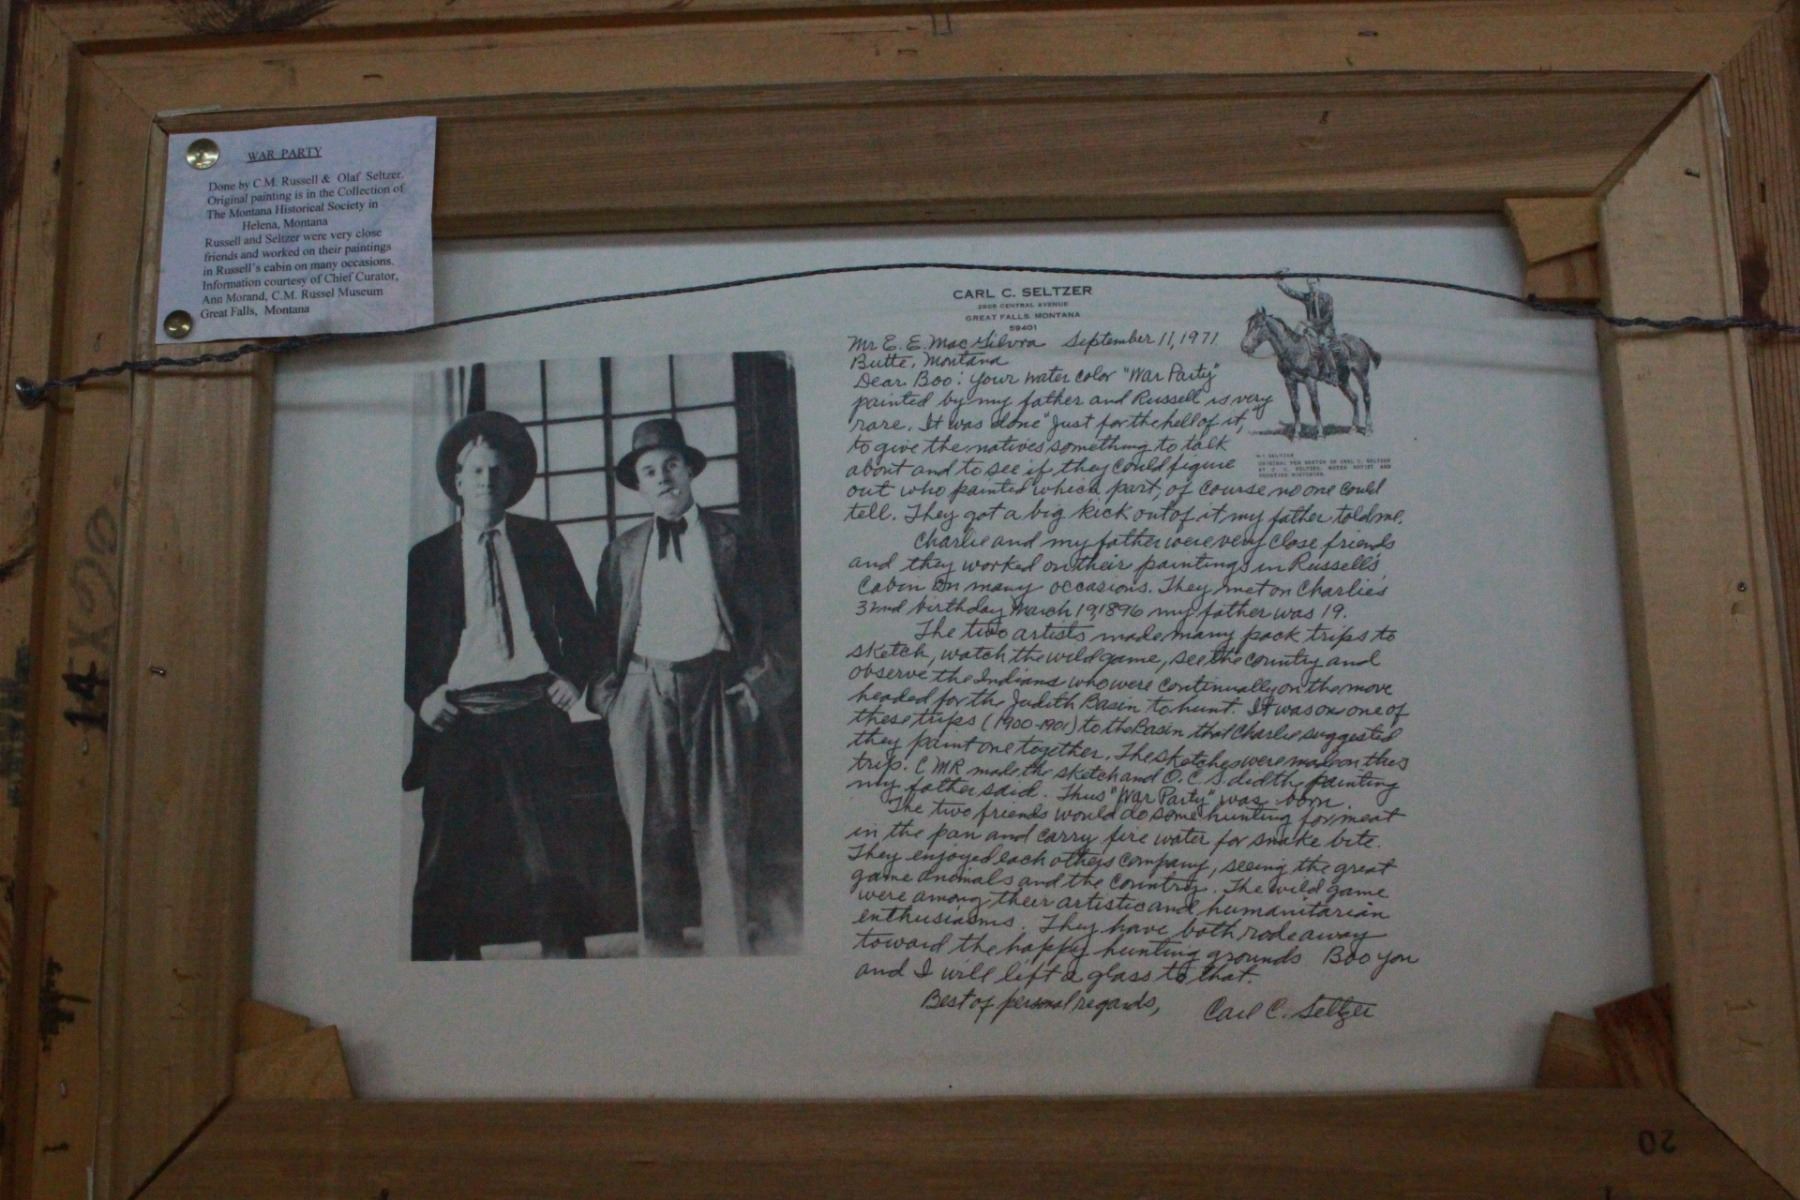 WAR PARTY
Done by C.M. Russell & Olaf Seltzer.
Original painting is in the Collection of
The Montana Historical Society in
Helena, Montana
Russell and Seltzer were very close
friends and worked on their paintings
in Russell's cabin on many occasions.
Information courtesy of Chief Curator,
Ann Morand, C.M. Russel Museum
Great Falls, Montana
CARL C. SELTZER
CENTRAL AVENUE
GREAT FALLS, MONTANA
59401
Mr E. E. MacGilvra September 11, 1971
Butte, Montana
Dear Boo: Your water color "War Party"
painted by my father and Russell is very
rare. It was done "Just for the hell of it,"
to give the natives something to talk
about and to see if they could figure
out who painted which part, of course no one could
tell. They got a big kick out of it my father told me.
Charlie and my father were very close friends
and they worked on their paintings in Russell's
Cabin on many occasions. They met on Charlie's
32nd birthday March 19, 1896 my father was 19.
The two artists made many pack trips to
sketch, watch the wild game, see the country and
observe the Indians who were continually on the move
headed for the Judith Basin to hunt. It was on one of
these trips (1900-1901) to the Basin that Charlie suggested
they paint one together. The sketches were made on this
trip. CMR made the sketch and O.C.S. did the painting
my father said. Thus "War Party" was born.
The two friends would do some hunting for meat
in the pan and carry fire water for snake bite.
They enjoyed each others company, seeing the great
game animals and the country. The wild game
were among their artistic and humanitarian
enthusiasms. They have both rode away
toward the happy hunting grounds Boo you
and I will lift a glass to that.
Best of personal regards, Carl C. Seltzer
14 X 20
20